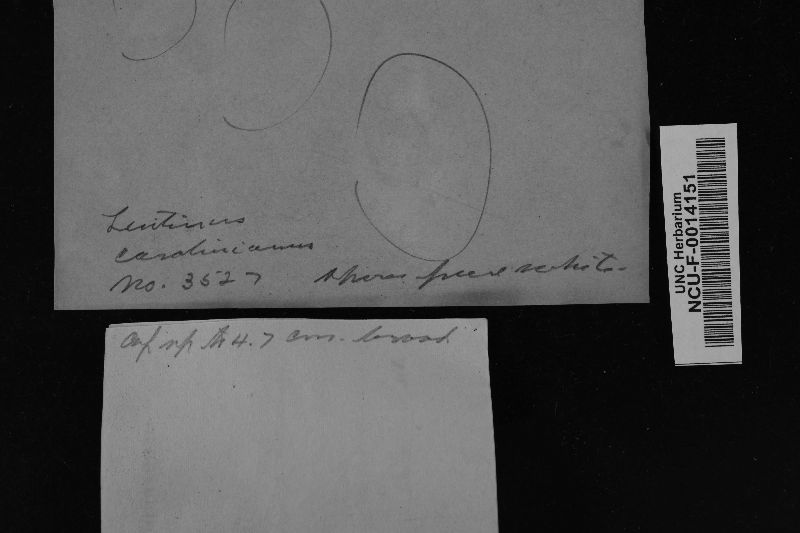 Lentinus
carolinianus
No. 3527
spores pure white.
Cap up to 4.7 cm. broad
UNC Herbarium
NCU-F-0014151